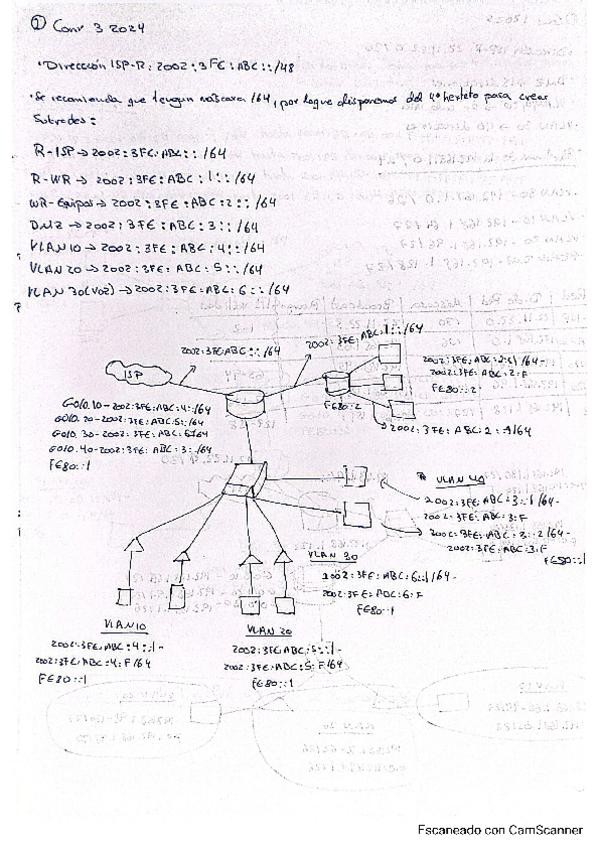 ① Conv 3 2024
·Dirección ISP-R: 2002:3FE:ABC::/48
·Se recomienda que tengan máscara /64, por lo que disponemos del 4º hexteto para crear
Subredes:
R-ISP → 2002:3FE:ABC::/64
R-WR → 2002:3FE:ABC:1::/64
WR-Equipos → 2002:3FE:ABC:2::/64
DMZ → 2002:3FE:ABC:3::/64
VLAN10 → 2002:3FE:ABC:4::/64
VLAN 20 → 2002:3FE:ABC:5::/64
VLAN 30(VOZ) → 2002:3FE:ABC:6::/64
2002:3FE:ABC:1::/64
2002:3FE:ABC::/64
ISP
2002:3FE:ABC:2:F
FE80::2
FE80::2
G0/0.10-2002:3FE:ABC:4::/64
G0/0.20-2002:3FE:ABC:5::/64
G0/0.30-2002:3FE:ABC:6:/64
G0/0.40-2002:3FE:ABC:3::/64
FE80::1
VLAN 40
2002:3FE:ABC:3::1/64-
2002:3FE:ABC:3:F
2002:3FE:ABC:3::2/64-
2002:3FE:ABC:3:F
FE80::1
VLAN 30
2002:3FE:ABC:6::/64-
2002:3FE:ABC:6:F
FE80::1
VLAN10
2002:3FE:ABC:4::/-
2002:3FE:ABC:4:F/64
FE80::1
VLAN 20
2002:3FE:ABC:5::/-
2002:3FE:ABC:5:F/64
FE80::1
Escaneado con CamScanner